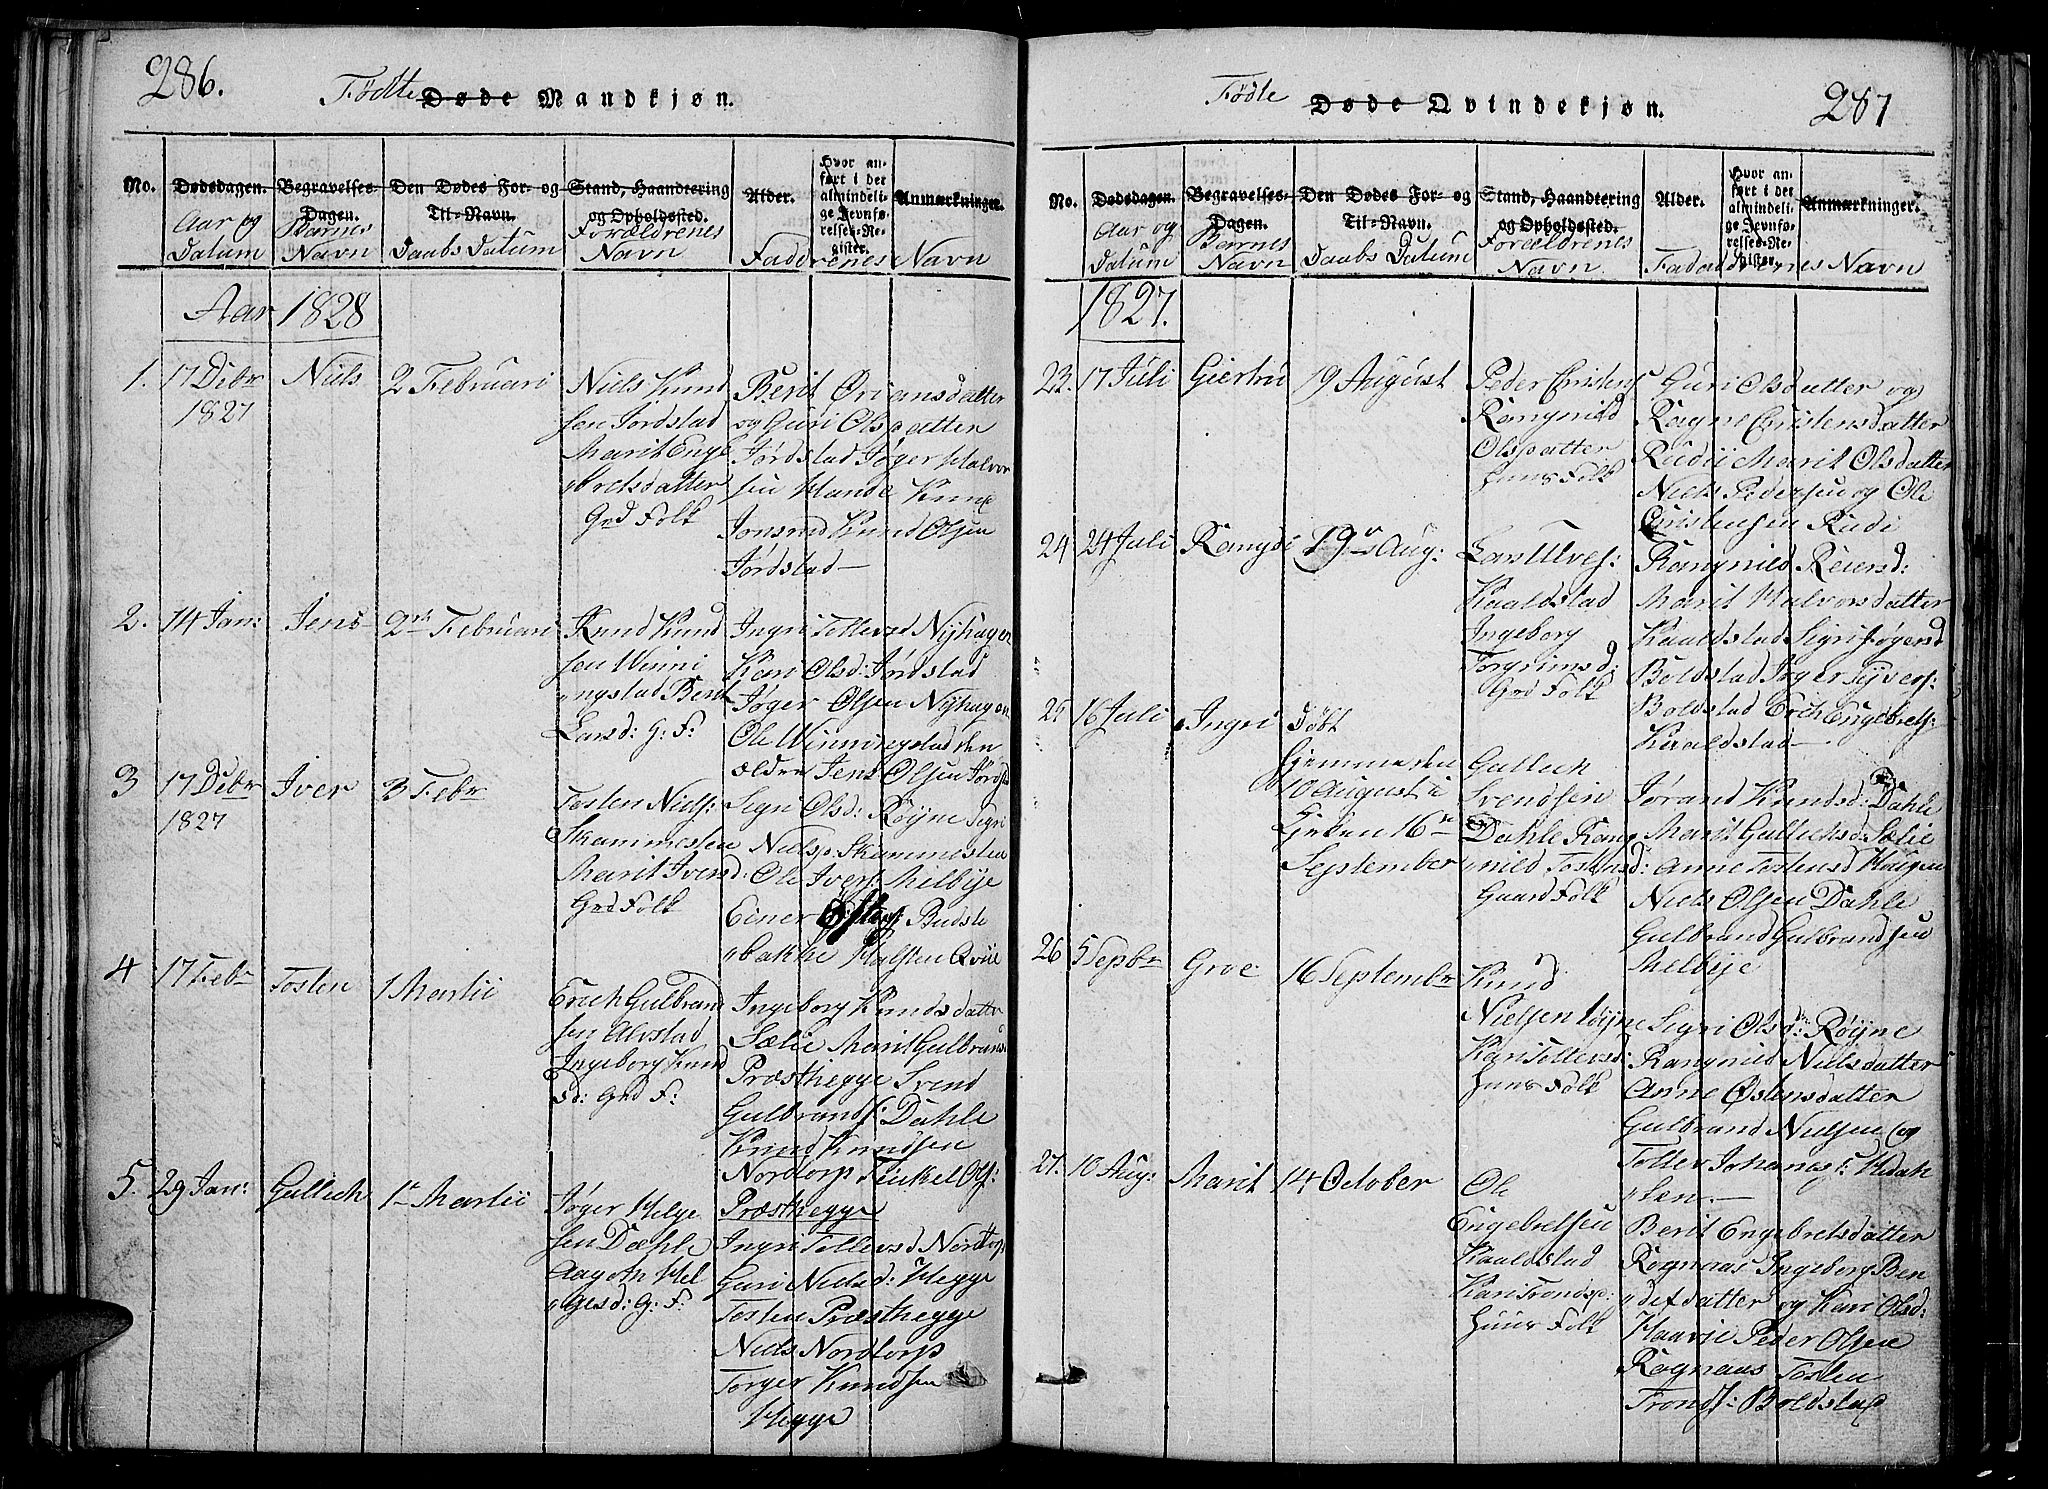 286.
Fødte Døde Mandkjøn.
No.
Dødsdagen.
Aar og
Datum
Begravelses-
Dagen.
Barnes
Navn
Den Dødes For- og
Til-Navn.
Daabs Datum
Stand, Haandtering
og Opholdssted.
Forældrenes
Navn
Alder.
Hvor an-
ført i det
almindeli-
ge Jevnfø-
relses-Re-
gister.
Anmærkninger.
Faddrenes Navn
Aar 1828
1.
17 Debr
1827
Niels
2 Februari
Niels Knud
sen Jordstad
Marit Enge
bretsdatter
Grd Folk
Berit Ørjansdatter
og Guri Olsdatter
Jørdstad Jøger Halvor
sen Hande Knud
Jonsrud Knud Olsen
Jørdstad
2.
14 Jan:
Jens
2den Februari
Knud Knud
sen Winni
ngstad Berit
Larsd: G: F:
Ingri Tollevsd Nyhagen
Kari Olsd: Jørdstad
Jøger Olsen Nyhagen
Ole Winningstad den
ældre Jens Olsen Jørdst
3
17 Debr
1827
Iver
3 Febr
Tosten Niels:
Skammesten
Marit Iversd:
Grd Folk
Segri Olsd: Røyne Segri
Nielsd Skammesten
Ole Ivers: Melbye
Einer Budsle
bakke Halsten Qvile
4
17 Febr
Tosten
1 Martii
Erich Gulbrand
sen Alvstad
Ingeborg Knud
sd: Grd F:
Ingeborg Knudsdatter
Sælie Marit Gulbrands
Præsthegge Svend
Gulbrands: Dahle
Knud Knudsen
Nordtorp Tinkel Ols:
Præsthegge
5.
29 Jan:
Gullich
1e Martii
Jøger Helge
sen Dæhle
Aagoth Hel
gesd: G: F:
Ingri Tollevsd Nordtorp
Guri Nielsd: Hegge
Tosten Præsthegge
Niels Nordtorp
Torger Knudsen
Hegge
287
Fødte Døde Qvindekjøn.
No.
Dødsdagen.
Aar og
Datum
Begravelses-
Dagen.
Barnes
Navn
Den Dødes For- og
Til-Navn.
Daabs Datum
Stand, Haandtering
og Opholdssted.
Forældrenes
Navn.
Alder.
Hvor an-
ført i det
almindeli-
ge Jevnfø-
relses-Re-
gister.
Anmærkninger.
Faddrenes Navn
1827.
23.
17 Juli
Giertru
19 August
Peder Christens
Rangnild
Olsdatter
Huus Folk
Guri Olsdatter og
Ragne Christensdatter
Rudii Marit Olsdatter
Niels Pedersen og Ole
Christensen Rudi
24
24 Juli
Rangdi
19 Aug:
Lars Ulves:
Kaaldstad
Ingeborg
Torgrimsd:
Grd Folk
Rangnild Reiersd:
Marit Halvorsdatter
Kaaldstad Sigri Jøgersd
Boldstad Jøger Syvers:
Boldstad Erich Engebrets:
Kaaldstad
25
16 Juli
Ingri
Døbt
hjemme den
10 August i
Kirken 16de
September
Gullich
Svendsen
Dahle Rang
nild Tostensd:
Gaard Folk
Jørand Knudsd: Dahle
Marit Gullichsd: Sælie
Anne Tostensd Haugen
Niels Olsen Dahle
Gulbrand Gulbrandsen
Melbye
26
5 Sepbr
Groe
16 Septembr
Knud
Nielsen Røyne
Kari Tollevsd:
Huus Folk
Segri Olsd: Røyne
Rangnild Nielsdatter
Anne Østensdatter
Gulbrand Nielsen og
Tollev Johanes: Hedah
len
27.
10 Aug:
Marit
14 October
Ole
Engebretsen
Kaaldstad
Kari Trondsd:
Huus Folk
Berit Engebretsdatter
Rognaas Ingeborg Ben
detsdatter og Kari Olsd:
Haavie Peder Olsen
Rognaas Tosten
Tronds: Boldstad